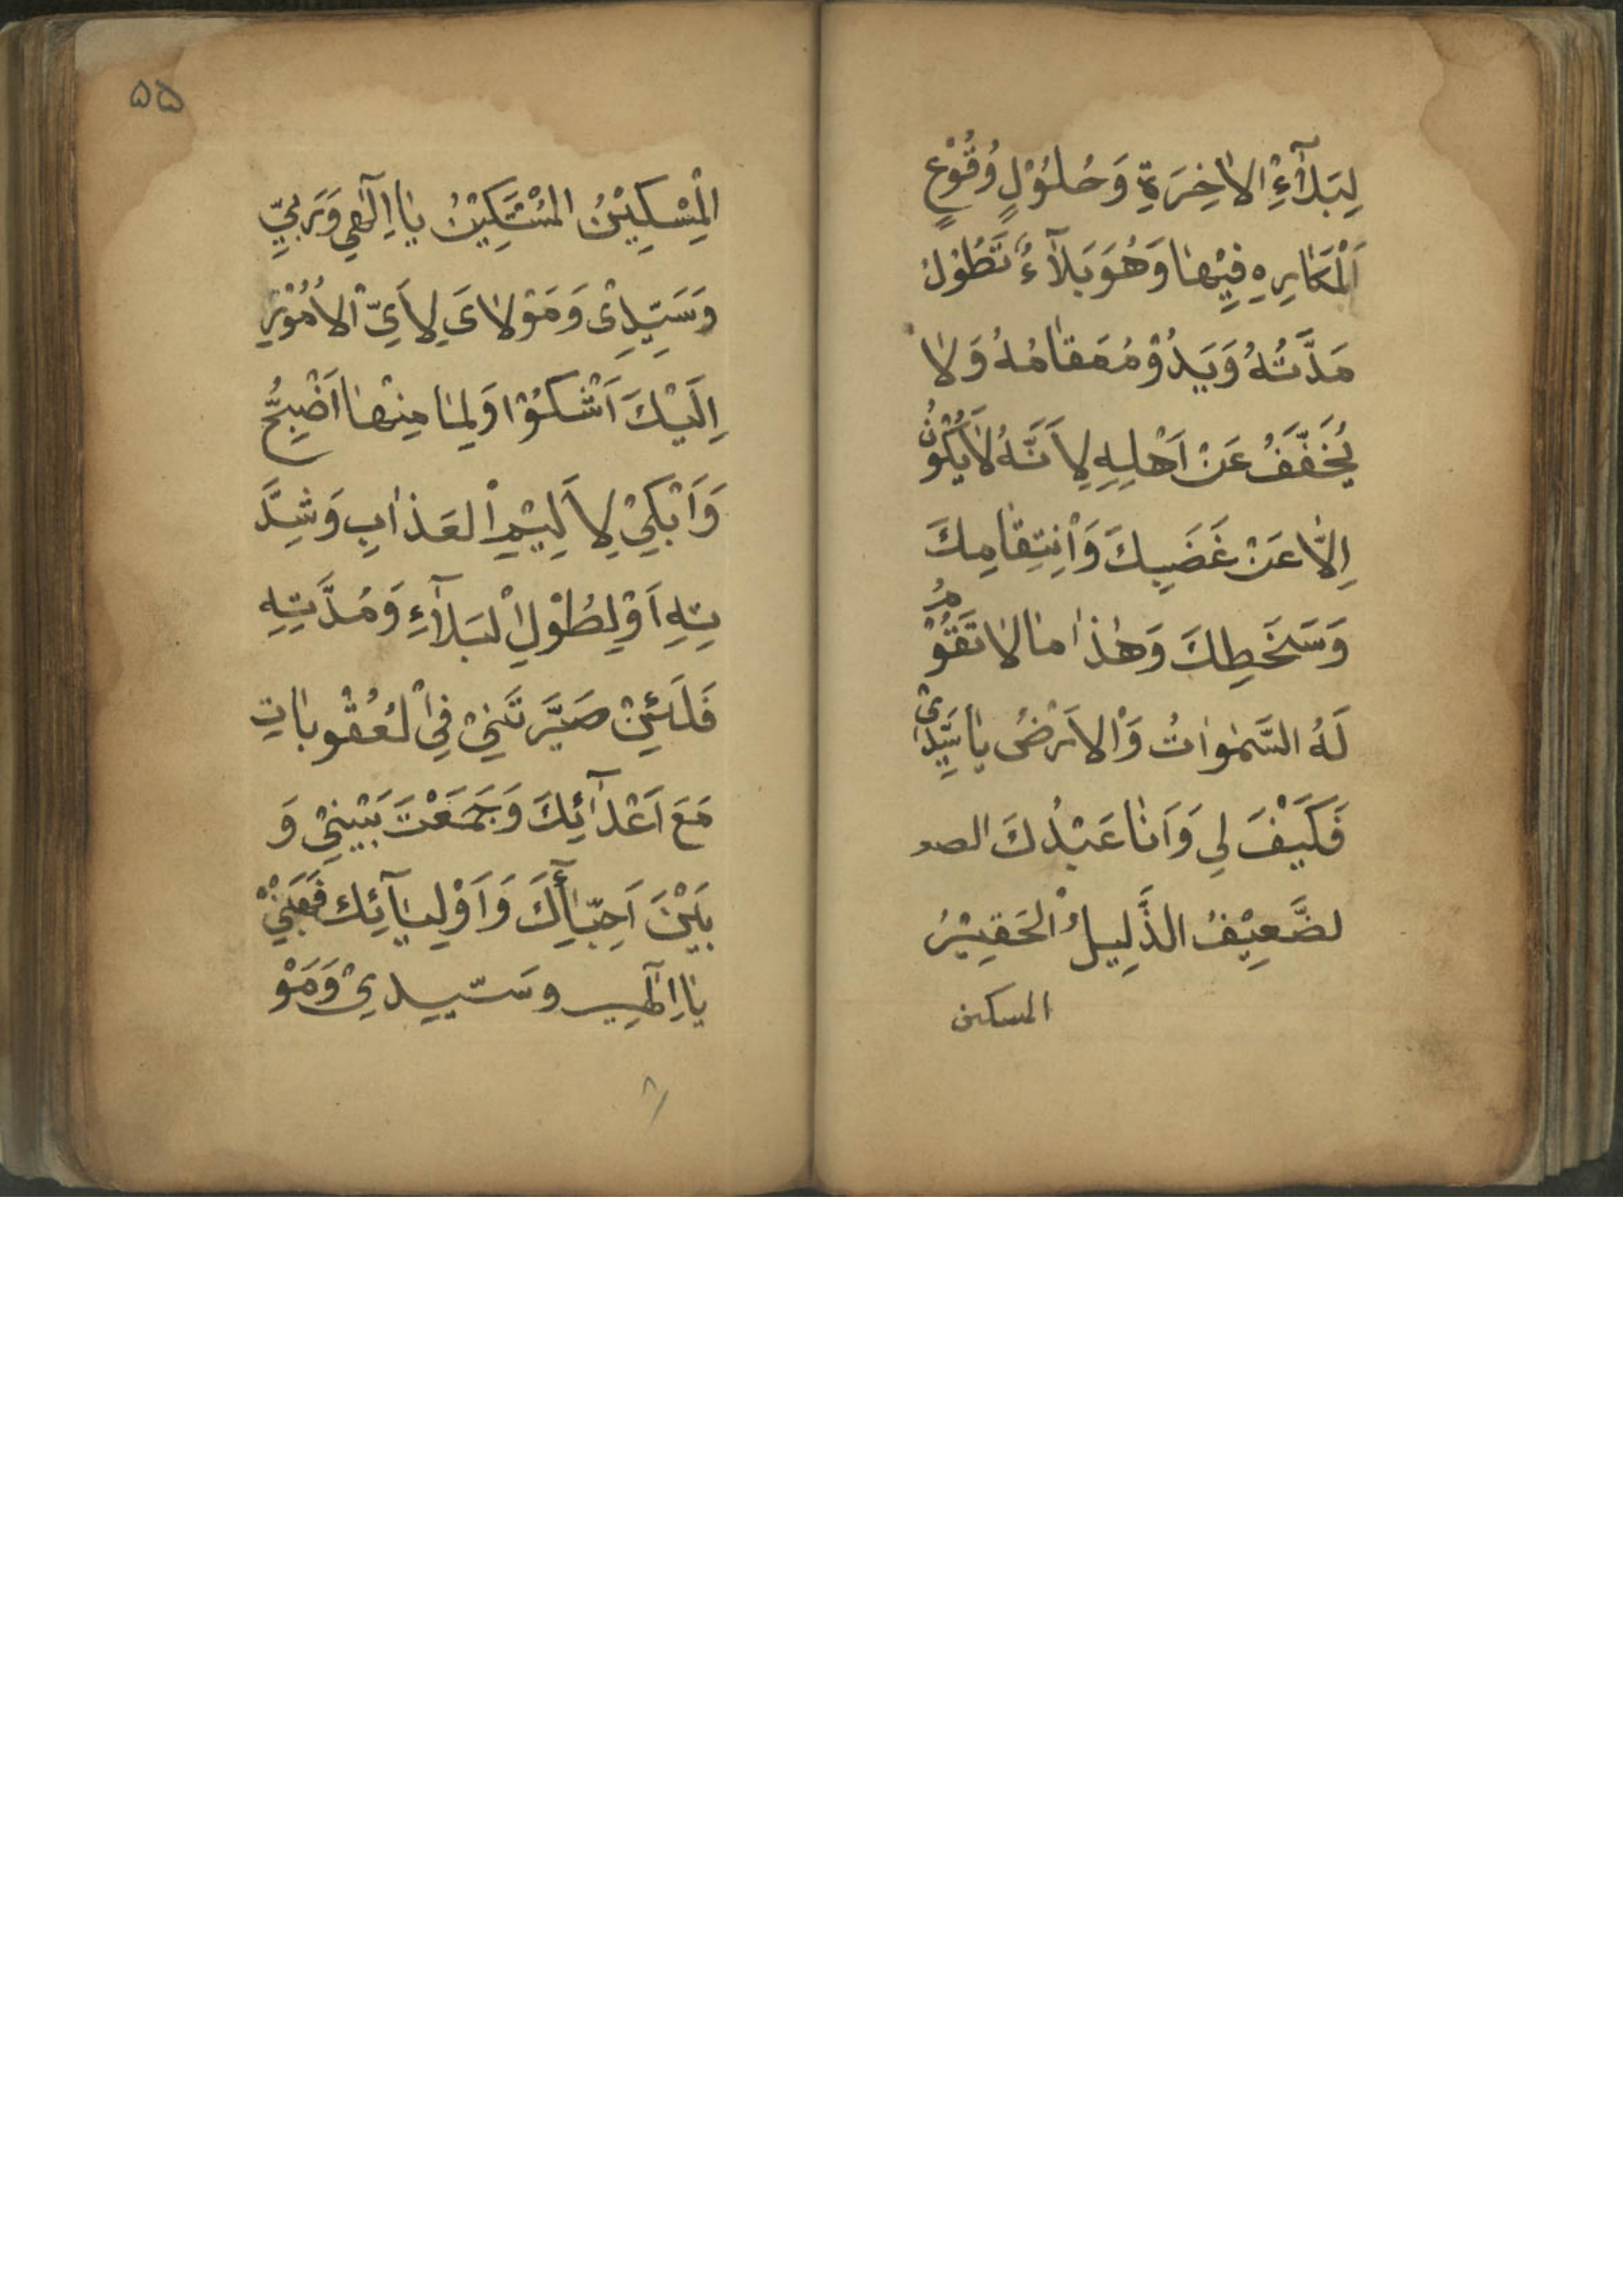 لِبَلآءِ الاٰخِرَةِ وَحُلُوْلٍ وُقُوْعٍ
اَلْمَكٰارِهِ فِيْهٰا وَهُوَ بَلآءٌ تَطُوْلُ
مَدَّتُهُ وَيَدُوْمُ مَقٰامُهُ وَلاٰ
يُخَفَّفُ عَنْ اَهْلِهِ لِاَنَّهُ لاٰيَكُوْنُ
اِلاّٰ عَنْ غَضَبِكَ وَانْتِقٰامِكَ
وَسَخَطِكَ وَهٰذٰا مٰا لاٰ تَقُوْمُ
لَهُ السَّمٰوٰاتُ وَالْاَرْضُ يٰا سَيِّدِىْ
فَكَيْفَ لِي وَاَنٰا عَبْدُكَ الصـ
لضَّعِيْفُ الذَّلِيلُ الْحَقِيْرُ
المسكين
۵۵
الْمِسْكِيْنُ الْمُسْتَكِيْنُ يٰا اِلٰهِي وَرَبِّيْ
وَسَيِّدِىْ وَمَوْلاٰىَ لِاَىِّ الْاُمُوْرِ
اِلَيْكَ اَشْكُوْا وَلِمٰا مِنْهٰا اَضْبِحُّ
وَاَبْكِيْ لِاَلِيْمِ الْعَذٰابِ وَشِدَّ
تِهِ اَوْلِطُوْلِ الْبَلآءِ وَمُدَّتِهِ
فَلَئِنْ صَيَّرتَنِيْ فِي الْعُقُوبٰاتِ
مَعَ اَعْدٰآئِكَ وَجَمَعْتَ بَيْنِيْ وَ
بَيْنَ اَحِبّٰآئِكَ وَاَوْلِيٰآئِكَ فَهَبْنِيْ
يٰا اِلٰهِي وسَيّدِيْ وَمَوْ